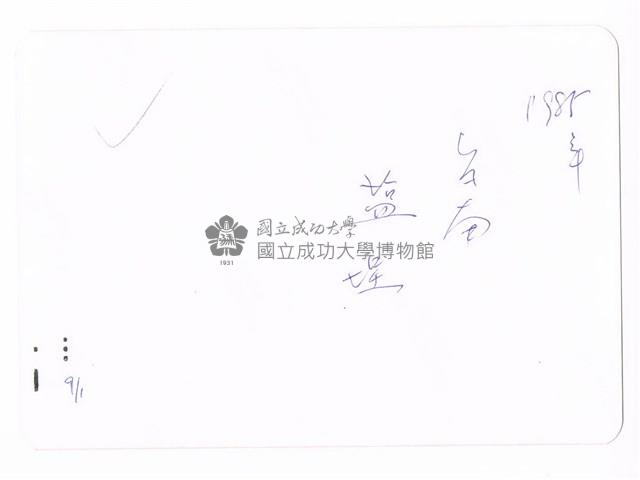 1985年
台南
塩埕
國立成功大學
國立成功大學博物館
1931
9/1